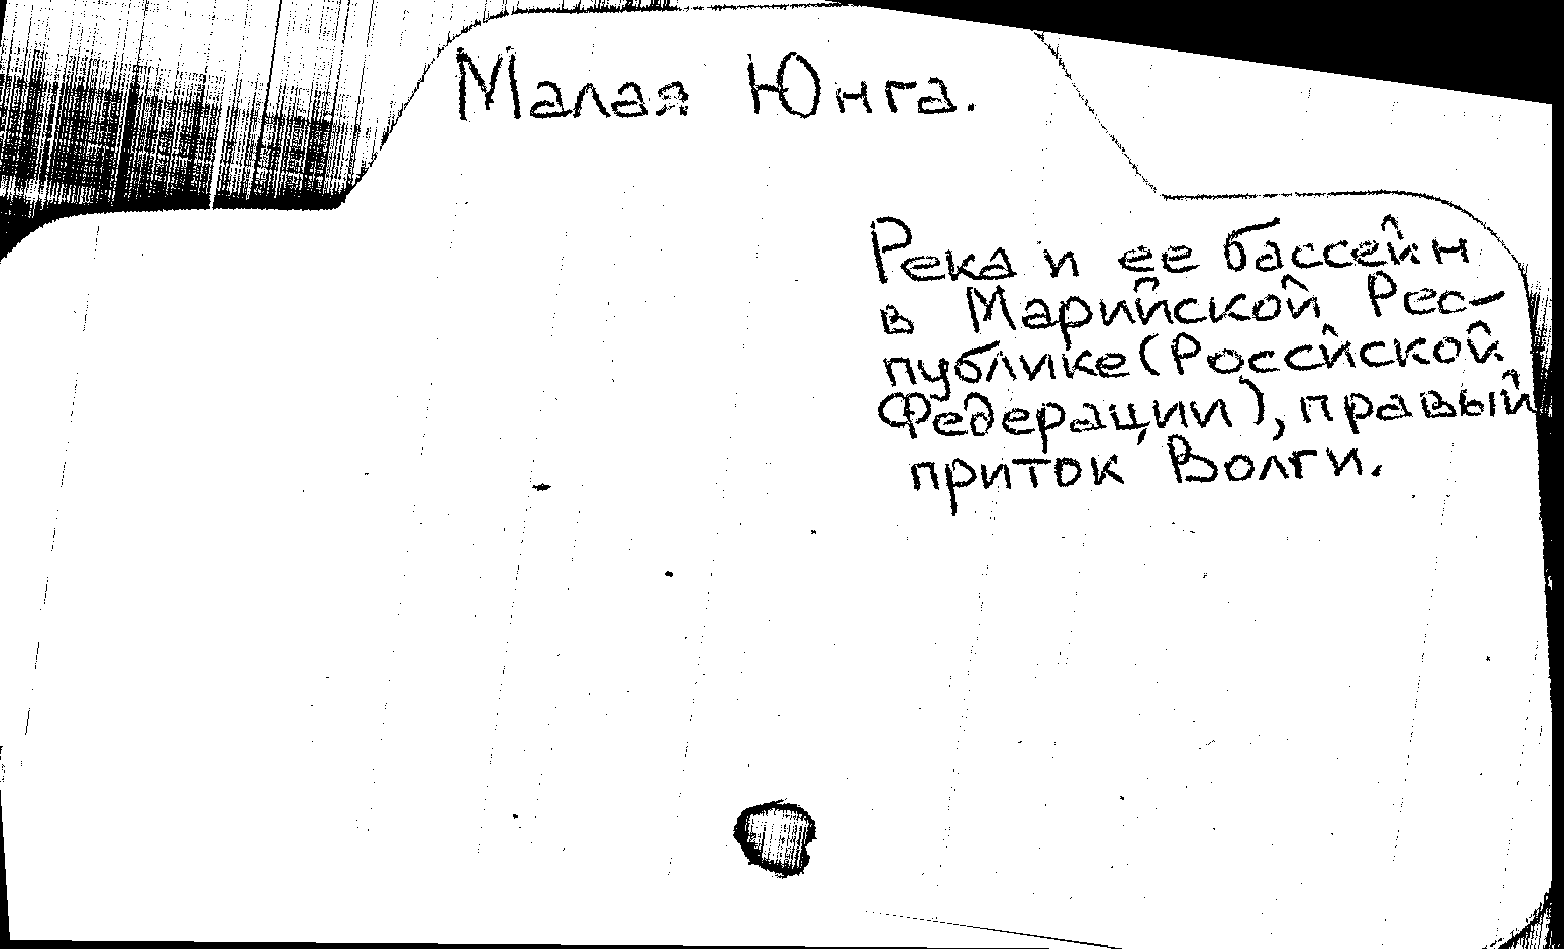 Малая Юнга.
Река и ее бассейн
в Марийской Рес-
публике (Россйской
Федерации), правый
приток Волги.